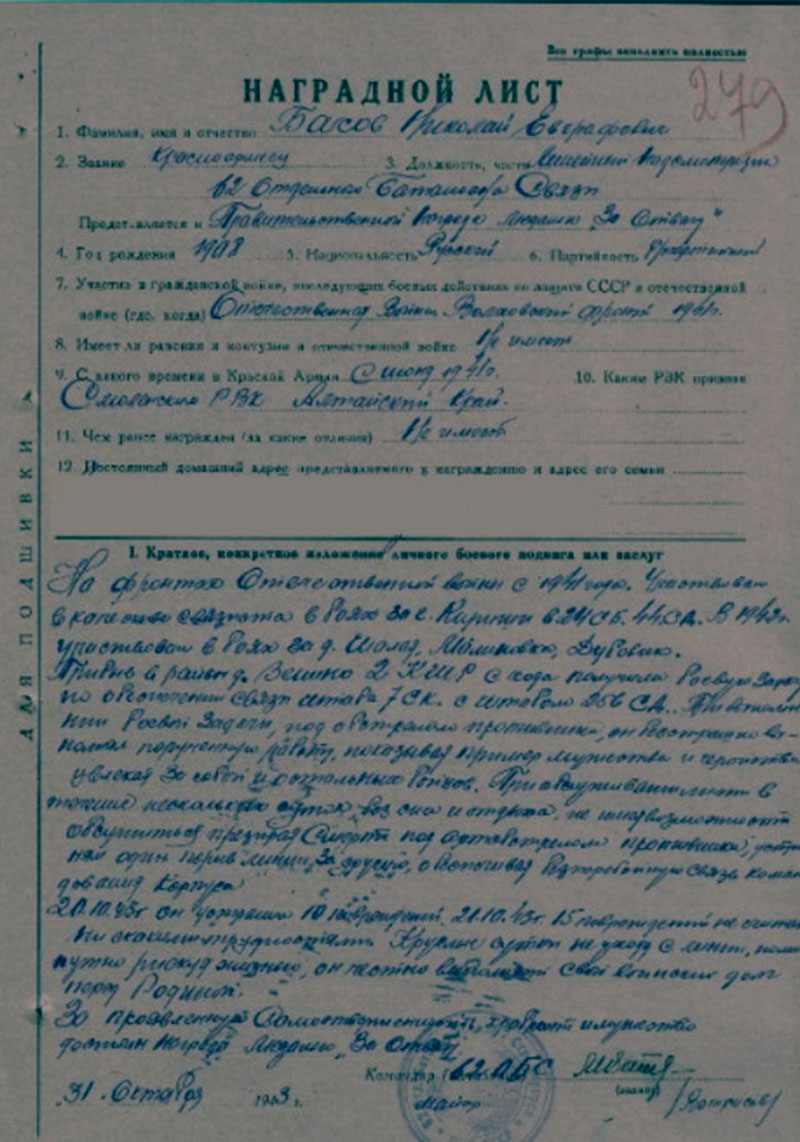 Все графы заполнить полностью
279
НАГРАДНОЙ ЛИСТ
1. Фамилия, имя и отчество Басов Николай Евграфович
2. Звание Красноармеец 3. Должность, часть Линейный Надсмотрщик
62 Отдельного Батальона Связи
Представляется к Правительственной Награде Медалью „За Отвагу“
4. Год рождения 1908 5. Национальность Русский 6. Партийность
7. Участие в гражданской войне, последующих боевых действиях по защите СССР и отечественной
войне (где, когда) Отечественная Война Волховский фронт 1941г.
8. Имеет ли ранения и контузии в отечественной войне Не имеет
9. С какого времени в Красной Армии С июня 1941г. 10. Каким РВК призван
Смоленским РВК Алтайский Край.
11. Чем ранее награжден (за какие отличия) Не имеет
12. Постоянный домашний адрес представляемого к награждению и адрес его семьи
ДЛЯ ПОДШИВКИ
I. Краткое, конкретное изложение личного боевого подвига или заслуг
На фронтах Отечественной войны с 1941 года. Участвовал
в качестве связиста в боях за г. Кириши в 24 СБ. 44 СД. В 1942г.
участвовал в боях за д. Малиновка, Дубовик.
в район д. 2 с хода получила боевую
по обеспечению связи штаба 7 СК. с штабом 256 СД.
боевой задачи, под обстрелом противника, он бесстрашно вы-
полнял порученную работу, показывая пример мужества и
увлекая за собой и остальных бойцов. При обслуживании линии в
течение нескольких суток без сна и отдыха, не
презирая смерть под обстрелом противника,
один порыв линии, за другим, обеспечивая бесперебойную связь коман-
дования Корпуса
20.10.43г он устранил 10 повреждений. 21.10.43г. 15 повреждений не
ни с какими трудностями. Круглые сутки не уходя с линии,
рискуя жизнью, он честно выполняет свой воинский долг
перед Родиной.
За проявленную храбрость и мужество
достоин Награды Медалью „За Отвагу“
Командир 62 ОБС
(звание)
„31“ Октября 1943 г. Майор